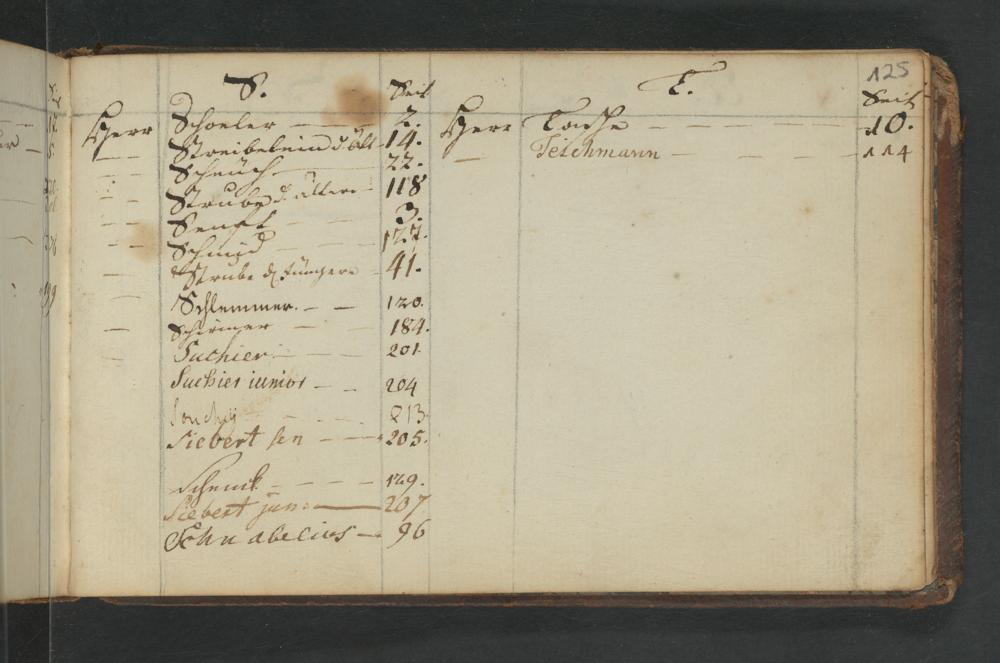 125
S.
Seit
Herr Schoeler 2.
Streibelein d. ält 14.
Scheüch 22.
Strube d. ältere 118
Senft 3.
Schmid 127.
Strube d. Jüngere 41.
Schlemmer. 120.
Schirmer 184.
Suchier 201
Suchier iunior 204
213
Siebert sen 205.
Schenck 129.
Siebert jun: 207
Schnabelius 96
T.
Seit
Herr Tasche 10.
Teichmann 114